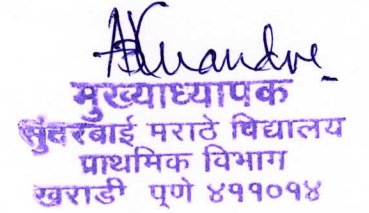 मुख्याध्यापक
सुंदरबाई मराठे विद्यालय
प्राथमिक विभाग
खराडी पुणे ४११०१४